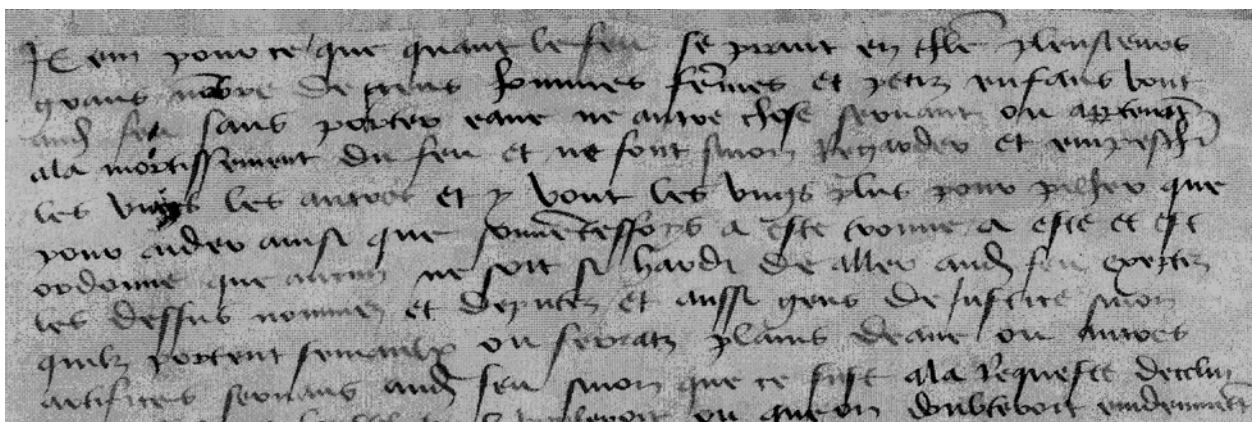 Item pource que quant le feu se prant en icelle plusieurs
grans nõbre de gens hommes fẽmes et petiz enfans vont
aud feu sans porter eaue ne autre chose servant ou apartenãt
ala mortissement du feu et ne font sinon regarder et empescher
les ungs les autres et y vont les ungs plus pour piller que
pour aider ainsi que souventeffoys a este trouve a este et est
ordonne que aucun ne soit si hardi de aller aud feu exeptez
les dessus nommez et deputez et aussi gens de justice sinon
quilz portent semaulx ou serratz plains deaue ou autres
artifices servans aud feu sinon que ce fust ala requeste decelui
ou que on doubteroit evidemment